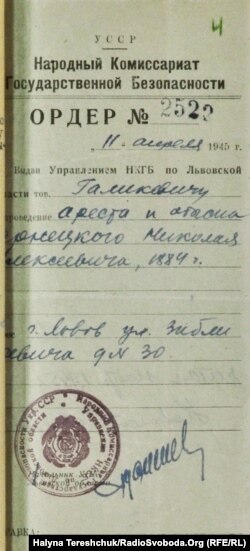 4
УССР
Народный Комиссариат
Государственной Безопасности
ОРДЕР № 2520
11. апреля 1945 г.
Выдан Управлением НКГБ по Львовской
ласти тов. Галикевичу
роведение ареста и обыска
онецкого Николая
лексеевича, 1884 г.
г. Львов ул. Зибли
евича д № 30.
РАВКА:
Halyna Tereshchuk/RadioSvoboda.Org (RFE/RL)